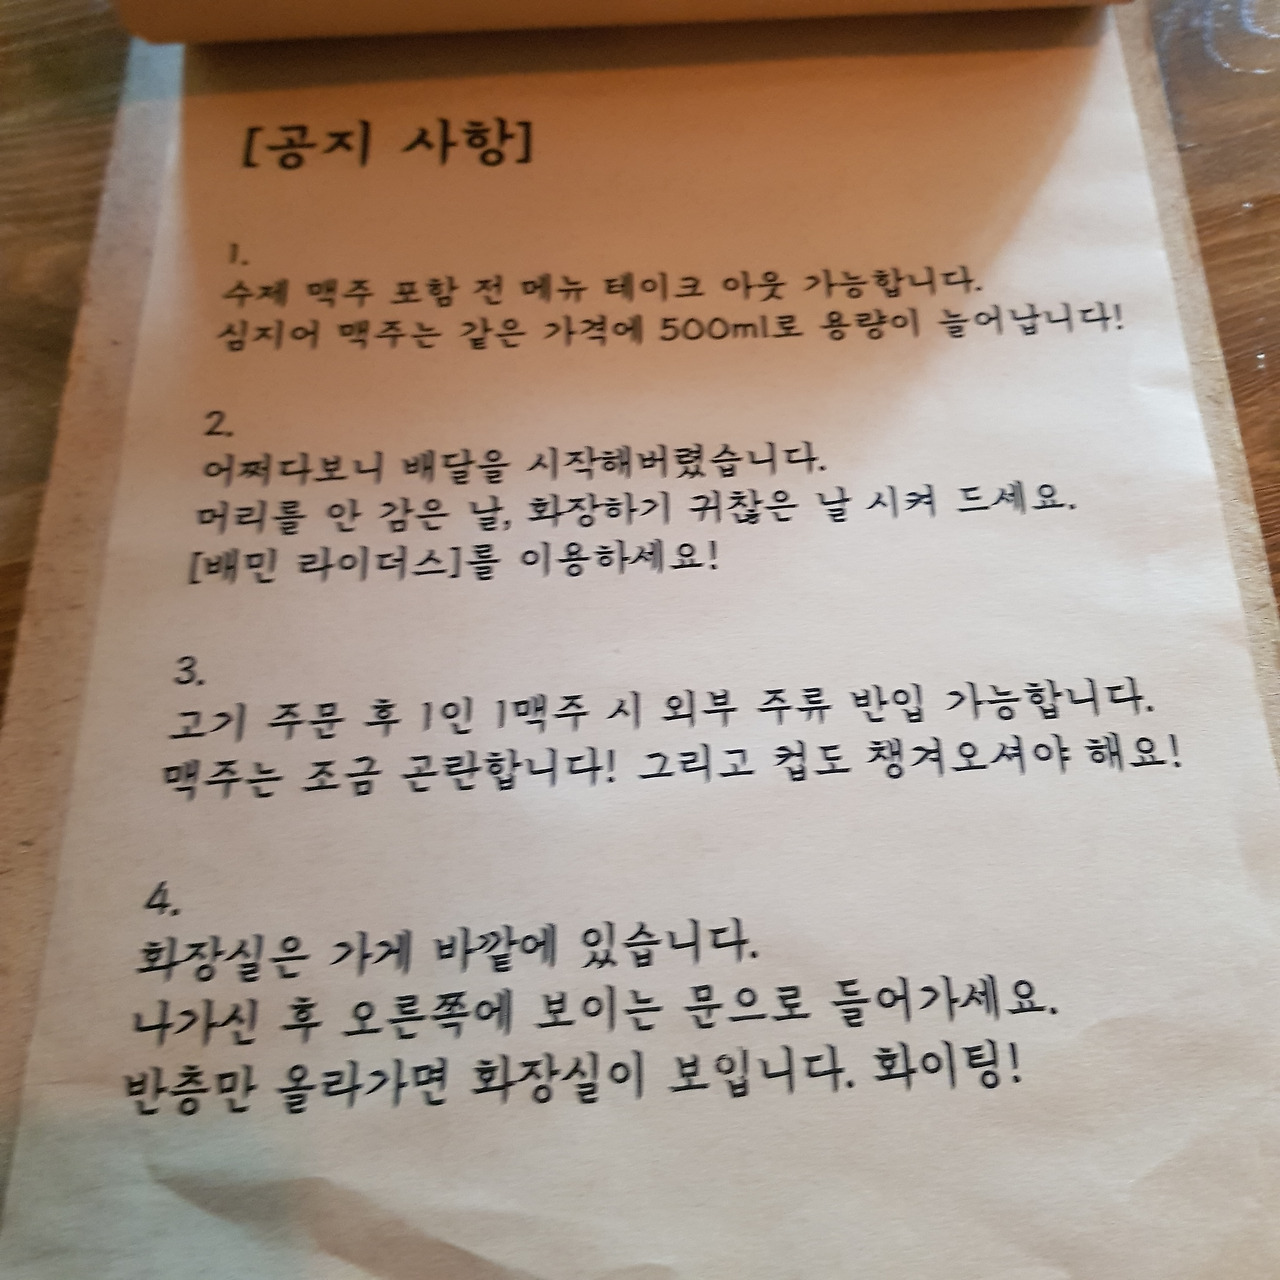 [공지 사항]
1.
수제 맥주 포함 전 메뉴 테이크 아웃 가능합니다.
심지어 맥주는 같은 가격에 500ml로 용량이 늘어납니다!
2.
어쩌다보니 배달을 시작해버렸습니다.
머리를 안 감은 날, 화장하기 귀찮은 날 시켜 드세요.
[배민 라이더스]를 이용하세요!
3.
고기 주문 후 1인 1맥주 시 외부 주류 반입 가능합니다.
맥주는 조금 곤란합니다! 그리고 컵도 챙겨오셔야 해요!
4.
화장실은 가게 바깥에 있습니다.
나가신 후 오른쪽에 보이는 문으로 들어가세요.
반층만 올라가면 화장실이 보입니다. 화이팅!